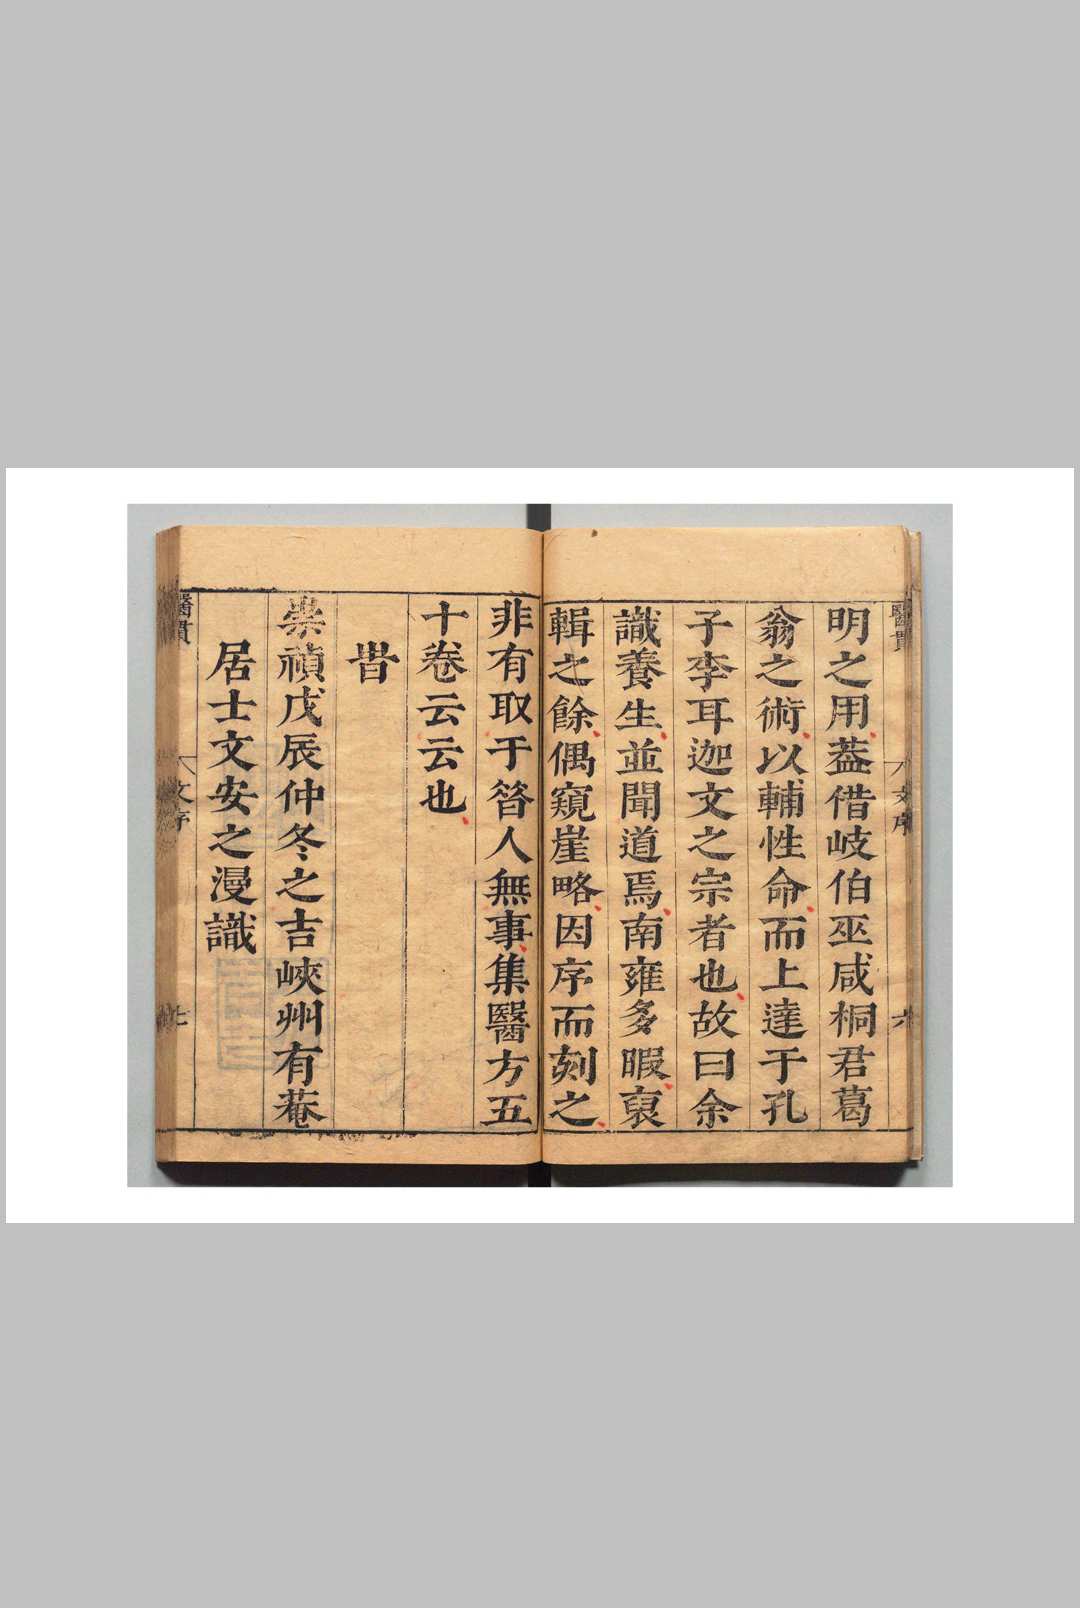 醫貫
文序
六
明之用葢借岐伯巫咸桐君葛
翁之術以輔性命而上達于孔
子李耳迦文之宗者也故曰余
識養生並聞道焉南雍多暇裒
輯之餘偶窺崖略因序而刻之
非有取于昝人無事集醫方五
十卷云云也
旹
崇禎戊辰仲冬之吉峽州有菴
居士文安之漫識
醫貫
文序
七